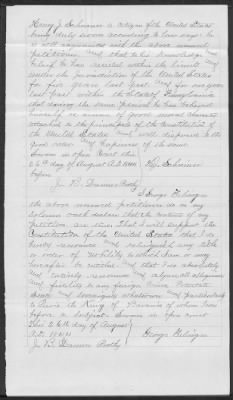 Henry J. Schreiner a citizen of the United States
being duly sworn according to law says: he
is well acquainted with the above named
petitioner and that to his knowledge and
belief he has resided within the limits and
under the jurisdiction of the United States
for five years last past and for one year
last past within the State of Pennsylvania
that during the same period he has behaved
himself as a man of good moral character
attached to the principles of the Constitution of
the United States and well disposed to the
good order and happiness of the same.
Sworn in open Court this
26th day of August A.D. H.J. Schreiner
before
J. B. Prothy
I George
the above named petitioner do on my
solemn oath declare that the contents of my
petition are true that I will support the
Constitution of the United States that I do
hereby renounce and relinquish any title
or order of nobility to which I am or may
hereafter be entitled and that I do absolutely
and entirely renounce and abjure all allegiance
and fidelity to any foreign Prince Potentate
State and sovereignty whatsoever and particularly
to Louis the King of Bavaria of whom I was
before a subject. Sworn in open court
This 26th day of August
A.D. George
J. B. Prothy